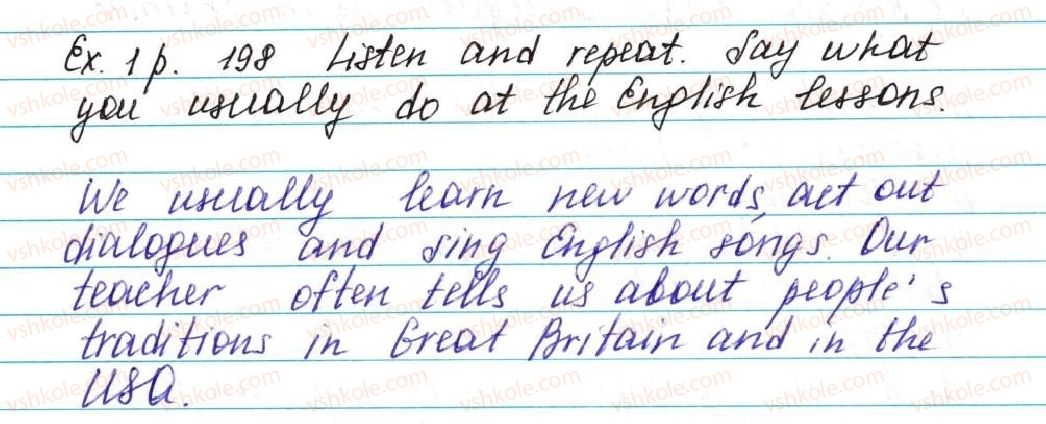 Ex. 1 p. 198 Listen and repeat. Say what
you usually do at the English lessons.
We usually learn new words, act out
dialogues and sing English songs. Our
teacher often tells us about people's
traditions in Great Britain and in the
USA.